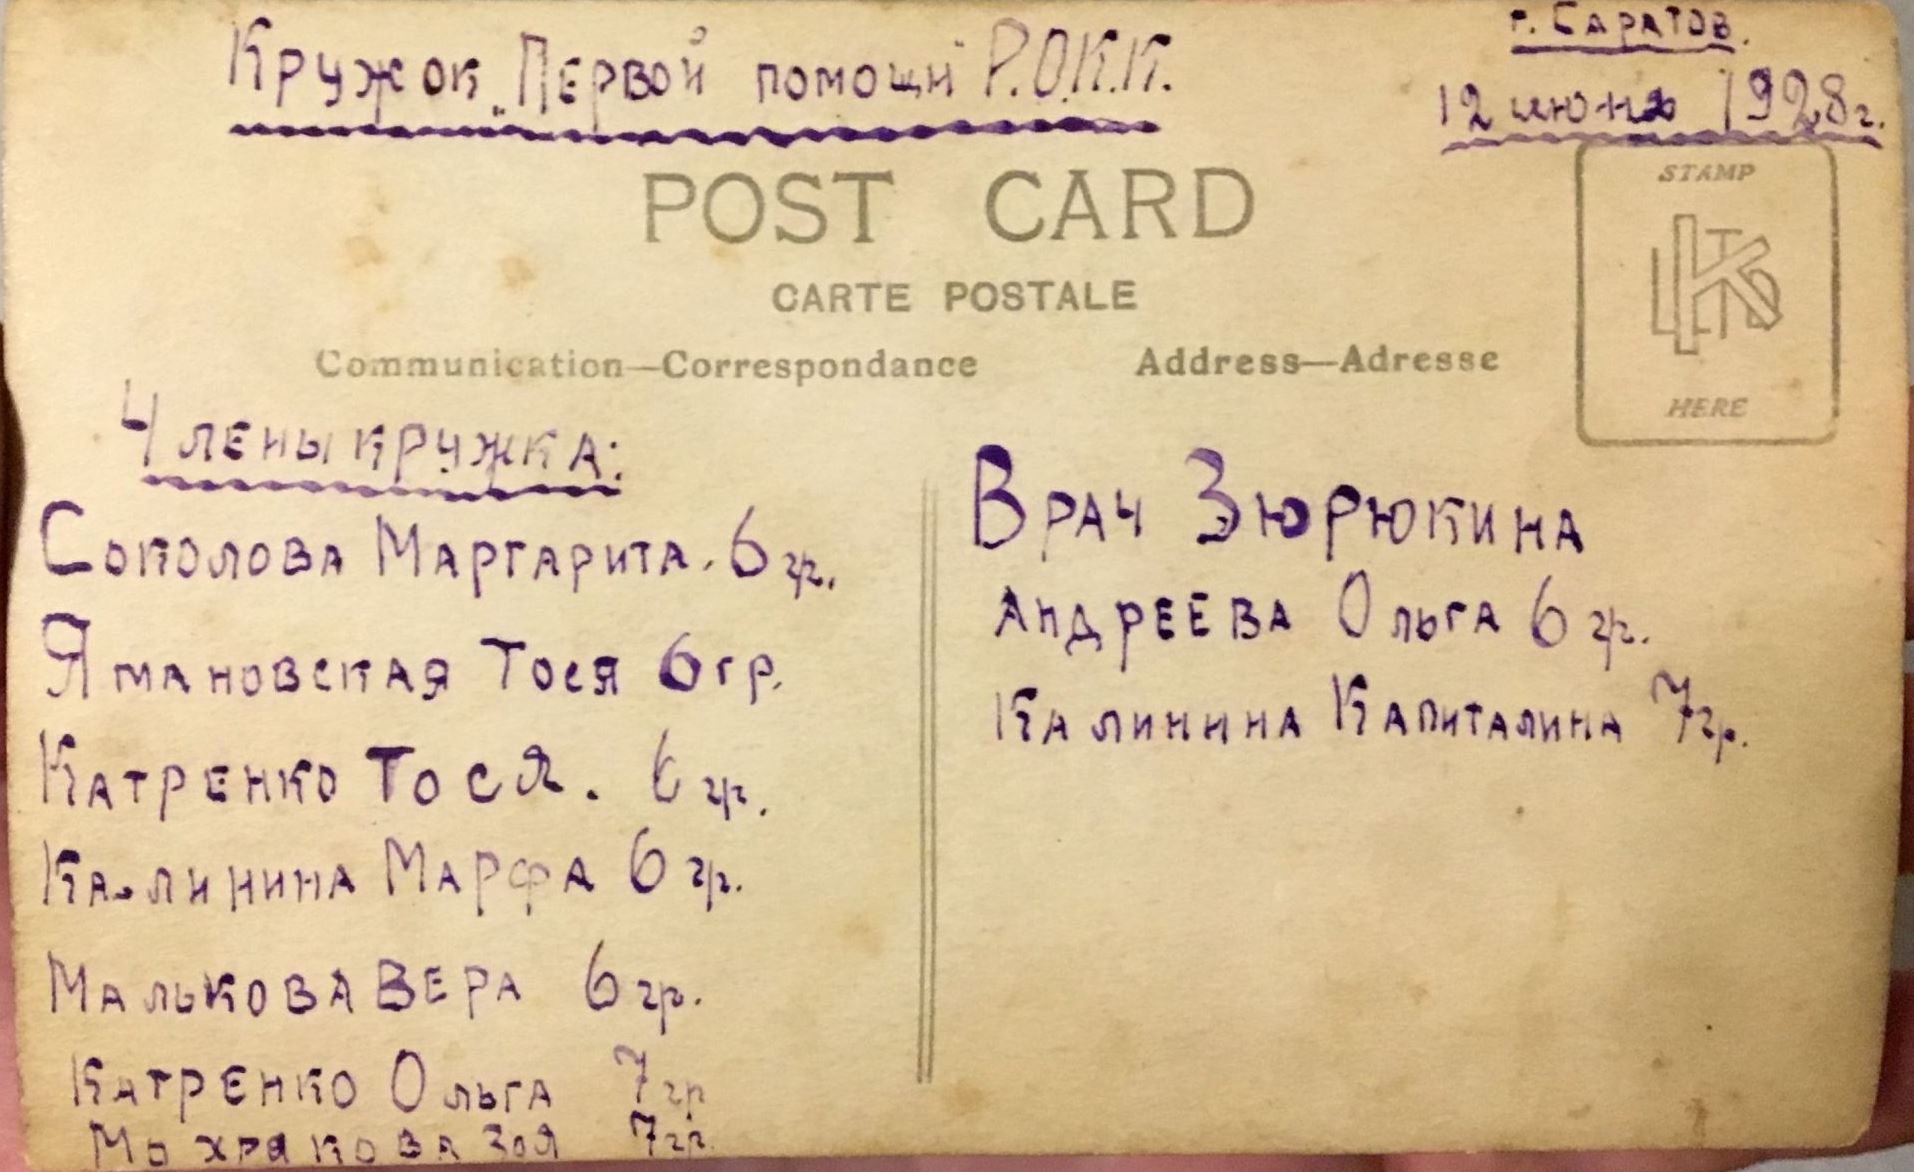 Кружок „Первой помощи" Р.О.К.К.
г. Саратов.
12 июня 1928г.
POST CARD
CARTE POSTALE
Communication—Correspondance
Address—Adresse
STAMP
HERE
Члены кружка:
Соколова Маргарита. 6 гр.
Ямановская Тося 6 гр.
Катренко Тося. 6 гр.
Калинина Марфа 6 гр.
Малькова Вера 6 гр.
Катренко Ольга 7 гр
Мохрякова Зоя 7 гр.
Врач Зюрюкина
Андреева Ольга 6 гр.
Калинина Капиталина 7 гр.